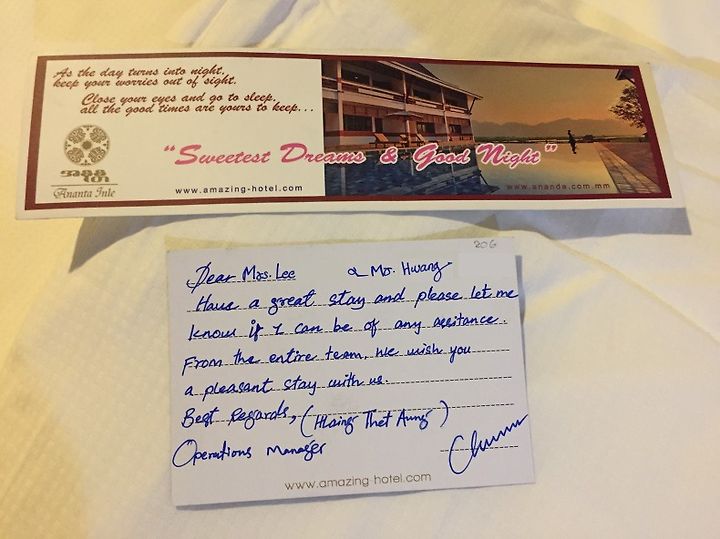 As the day turns into night,
keep your worries out of sight.
Close your eyes and go to sleep,
all the good times are yours to keep...
"Sweetest Dreams & Good Night"
Ananta Inle
www.amazing-hotel.com
www.ananda.com.mm
206
Dear Mrs. Lee & Mr. Hwang
Have a great stay and please let me
know if I can be of any assitance.
From the entire team, we wish you
a pleasant stay with us.
Best Regards, (Hlaing Thet Aung)
Operations Manager
www.amazing-hotel.com